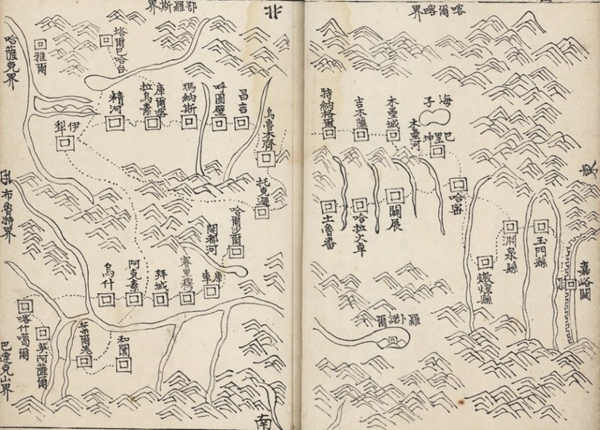 喀爾喀界
嘉峪關
玉門縣
淵泉縣
燉煌縣
哈密
巴里坤
海子
木壘河
木壘城
吉木薩
特納格爾
闢展
哈拉火卓
土魯番
羅卜諾爾
北
鄂羅斯界
烏魯木齊
昌吉
呼圖壁
瑪納斯
庫爾喀
拉烏素
精河
塔爾
巴哈台
雅爾
哈薩克界
伊犁
托克遜
哈喇沙爾
開都河
庫車
賽里穆
拜城
阿克蘇
烏什
布魯特界
葉爾羌
和闐
喀什噶爾
英阿薩爾
巴達克山界
南